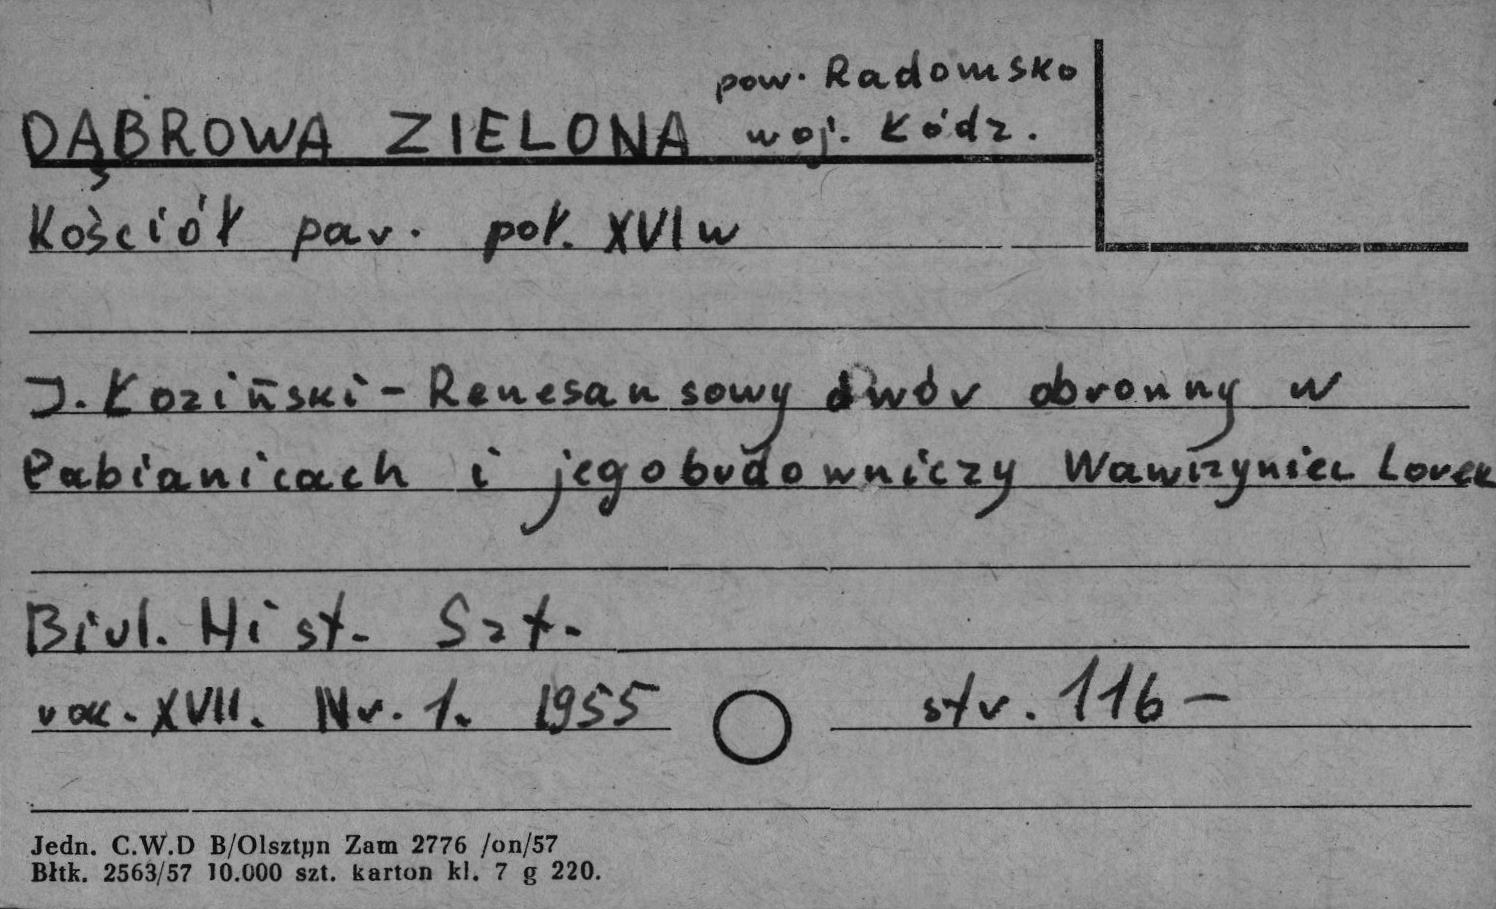 pow. Radomsko
DĄBROWA ZIELONA woj. Łódz.
Kościół par. poł. XVI w
J. Łoziński - Renesansowy dwór obronny w
Pabianicach i jego budowniczy Wawrzyniec Lorek
Biul. Hist. Szt.
rok. XVII. Nr. 1. 1955 str. 116 —
Jedn. C.W.D B/Olsztyn Zam 2776 /on/57
Błtk. 2563/57 10.000 szt. karton kl. 7 g 220.